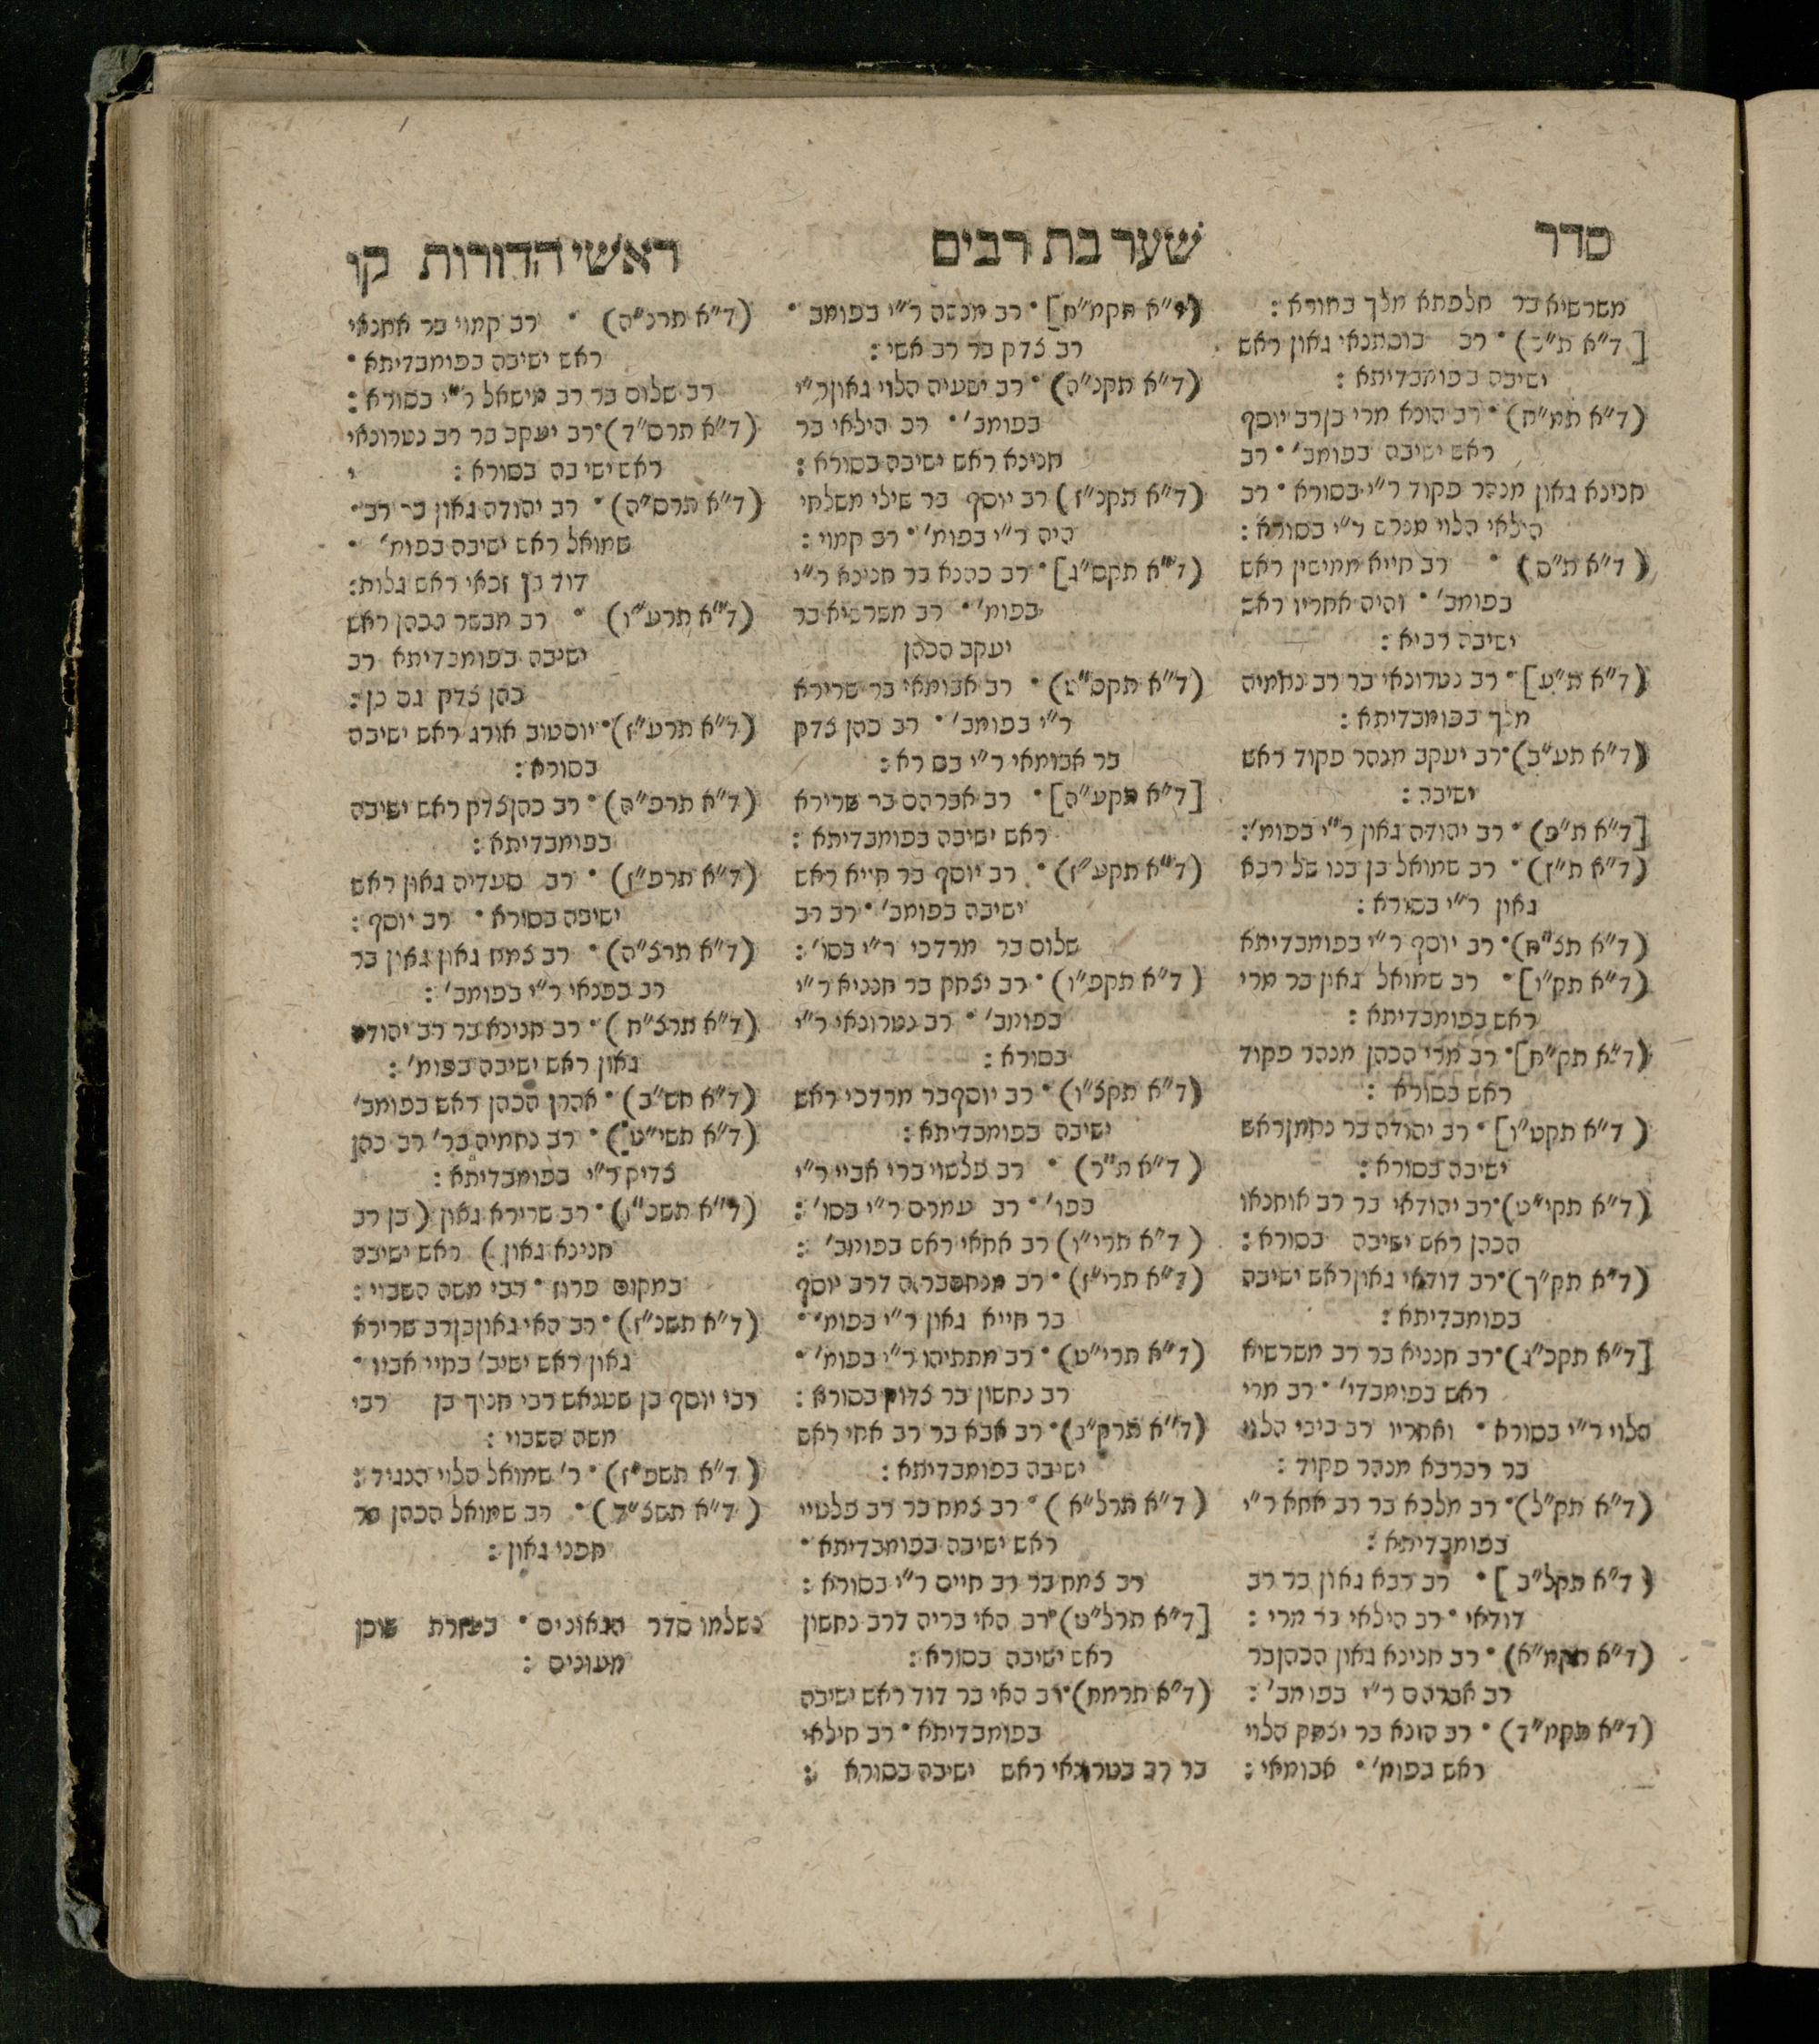 סדר שער בת רבים ראשי הדורות קו
משרשיא בר חלפתא מלך בחורא :
[ד"א ת"כ) • רב בוסתנאי גאון ראש
ישיבה בפומבדיתא :
(ד"א תמ"ח) • רב הונא מרי בן רב יוסף
ראש ישיבה בפומב' • רב
חנינא גאון מנהר פקוד ר"י בסורא • רב
הילאי הלוי מנרש ר"י בסורא :
(ד"א ת"ס) • רב חייא ממישין ראש
בפומב' • והיה אחריו ראש
ישיבה רביא :
(ד"א ת"ע] • רב נטרונאי בר רב נחמיה
מלך בפומבדיתא :
(ד"א תע"ב) • רב יעקב מנהר פקוד ראש
ישיבה :
[ד"א ת"פ) • רב יהודה גאון ר"י בפומ' :
(ד"א ת"ז) • רב שמואל בן בנו של רבא
גאון ר"י בסורא :
(ד"א תצ"ח) • רב יוסף ר"י בפומבדיתא
(ד"א תק"ו] • רב שמואל גאון בר מרי
ראש בפומבדיתא :
(ד"א תק"ח] • רב מרי הכהן מנהר פקוד
ראש בסורא :
(ד"א תקט"ו] • רב יהודה בר נחמן ראש
ישיבה בסורא :
(ד"א תקי"ט) • רב יהודאי בר רב אוחנאו
הכהן ראש ישיבה בסורא :
(ד"א תק"ך) • רב דודאי גאון ראש ישיבה
בפומבדיתא :
[ד"א תקכ"ג) • רב חנניא בר רב משרשיא
ראש בפומבדי' • רב מרי
הלוי ר"י בסורא • ואחריו רב ביבי הלוי
בר רברבא מנהר פקוד :
(ד"א תק"ל) • רב מלכא בר רב אחא ר"י
בפומבדיתא :
(ד"א תקל"ב] • רב רבא גאון בר רב
דודאי • רב הילאי בר מרי :
(ד"א תקמ"א) • רב חנינא גאון הכהן בר
רב אברהם ר"י בפומב' :
(ד"א תקמ"ד) • רב הונא בר יצחק הלוי
ראש בפומ' • אבומאי :
(ד"א תקמ"ח] • רב מנשה ר"י בפומב •
רב צדק בר רב אשי :
(ד"א תקנ"ה) • רב ישעיה הלוי גאון ר"י
בפומב' • רב הילאי בר
חנינא ראש ישיבה בסורא :
(ד"א תקנ"ז) רב יוסף בר שילי משלחי
היה ר"י בפומ' • רב קמוי :
(ד"א תקס"ג] • רב כהנא בר חנינא ר"י
בפומ' • רב משרשיא בר
יעקב הכהן
(ד"א תקס"ט) • רב אבומאי בר שרירא
ר"י בפומב' • רב כהן צדק
בר אבומאי ר"י בס רא :
[ד"א תקע"ה] • רב אברהם בר שרירא
ראש ישיבה בפומבדיתא :
(ד"א תקע"ז) • רב יוסף בר חייא ראש
ישיבה בפומב' • רב רב
שלום בר מרדכי ר"י בסו' :
(ד"א תקפ"ו) • רב יצחק בר חנניא ר"י
בפומב' • רב נטרונאי ר"י
בסורא :
(ד"א תקצ"ו) • רב יוסף בר מרדכי ראש
ישיבה בפומבדיתא :
(ד"א ת"ר) • רב פלטוי ברי אביי ר"י
בפו' • רב עמרם ר"י בסו' :
(ד"א תרי"ו) רב אחאי ראש בפומב' :
(ד"א תרי"ז) • רב מנחם בריה דרב יוסף
בר חייא גאון ר"י בפומ' •
(ד"א תרי"ט) • רב מתתיהו ר"י בפומ' •
רב נחשון בר צדוק בסורא :
(ד"א תרק"ב) • רב אבא בר רב אחי ראש
ישיבה בפומבדיתא :
(ד"א תרל"א) • רב צמח בר רב פלטיי
ראש ישיבה בפומבדיתא •
רב צמח בר רב חיים ר"י בסורא :
[ד"א תרל"ט) • רב האי בריה דרב נחשון
ראש ישיבה בסורא :
(ד"א תרמח) • רב האי בר דוד ראש ישיבה
בפומבדיתא • רב חילאי
בר רב נטרונאי ראש ישיבה בסורא :
(ד"א תרנ"ה) • רב קמוי בר אחנאי
ראש ישיבה בפומבדיתא •
רב שלום בר רב מישאל ר"י בסורא :
(ד"א תרס"ד) • רב יעקב בר רב נטרונאי
ראש ישיבה בסורא : י
(ד"א תרס"ה) • רב יהודה גאון בר רב •
שמואל ראש ישיבה בפומ' •
דוד בן זכאי ראש גלות :
(ד"א תרע"ו) • רב מבשר הכהן ראש
ישיבה בפומבדיתא רב
כהן צדק גם כן :
(ד"א תרע"ז) • יוסטוב אורג ראש ישיבה
בסורא :
(ד"א תרפ"ה) • רב כהן צדק ראש ישיבה
בפומבדיתא :
(ד"א תרפ"ז) • רב סעדיה גאון ראש
ישיבה בסורא • רב יוסף :
(ד"א תרצ"ה) • רב צמח גאון גאון בר
רב כפנאי ר"י בפומב' :
(ד"א תרצ"ח) • רב חנינא בר רב יהודה
גאון ראש ישיבה בפומ' :
(ד"א תש"ב) • אהרן הכהן ראש בפומב'
(ד"א תשי"ט) • רב נחמיה בר' רב כהן
צדיק ר"י בפומבדיתא :
(ד"א תשכ"ו) • רב שרירא גאון (בן רב
חנינא גאון) ראש ישיבה
במקום פרוז • רבי משה השבוי :
(ד"א תשכ"ז) • רב האי גאון בן רב שרירא
גאון ראש ישיב' בחיי אביו •
רבי יוסף בן שטנאש רבי חניך בן רבי
משה השבוי :
(ד"א תשפ"ז) • ר' שמואל הלוי הנגיד :
(ד"א תשצ"ד) • רב שמואל הכהן בר
חפני גאון :
נשלמו סדר הגאונים • בעזרת שוכן
מעונים :